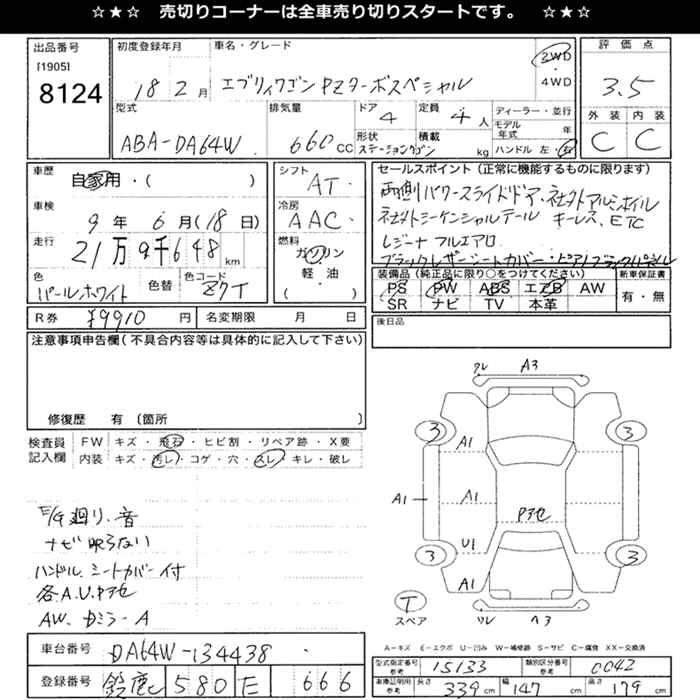 ☆★☆ 売切りコーナーは全車売り切りスタートです。 ☆★☆
出品番号
[1905]
8124
初度登録年月
18 2月
車名・グレード
エブリィワゴン PZターボスペシャル
2WD
・
4WD
評価点
3.5
外装 内装
C C
型式
ABA-DA64W
排気量
660 CC
ドア
4
形状
ステーションワゴン
定員
4 人
積載
kg
ディーラー・並行
モデル年式 年
ハンドル 左・右
車歴
自家用・( )
車検
9年 6月(18日)
走行
21万9千648 km
色
パールホワイト
色替
色コード
Z7T
シフト
AT
冷房
AAC
燃料
ガソリン
軽・油
( )
セールスポイント(正常に機能するものに限ります)
両側パワースライドドア・社外アルミホイル
社外シーケンシャルテール キーレス、ETC
レジーナ フルエアロ
ブラックレザーシートカバー・ピアノブラックパネル
装備品(純正品に限り○をつけてください)
PS PW ABS エアB AW
SR ナビ TV 本革
新車保証書
有・無
R券 ¥9910 円
名変期限 月 日
後日品
注意事項申告欄(不具合内容等は具体的に記入して下さい)
修復歴 有(箇所 )
検査員記入欄
FW キズ・飛石・ヒビ割・リペア跡・X要
内装 キズ・汚レ・コゲ・穴・スレ・キレ・破レ
E/G廻り、音
ナビ映らない
ハンドル、シートカバー付
各A.U.Pアセ
AW、Dミラー A
ワレ A3
3 3
A1
A1 A1
Pアセ
U1
3 3
A1
T
スペア
ワレ ヘコ
A−キズ E−エクボ U−凹み W−補修跡 S−サビ C−腐食 XX−交換済
車台番号 DA64W-134438
登録番号 鈴鹿 580 E 666
型式指定番号 参考 15133
類別区分番号 参考 0042
車庫証明用 参考 長さ 339 cm 幅 147 cm 高さ 179 cm